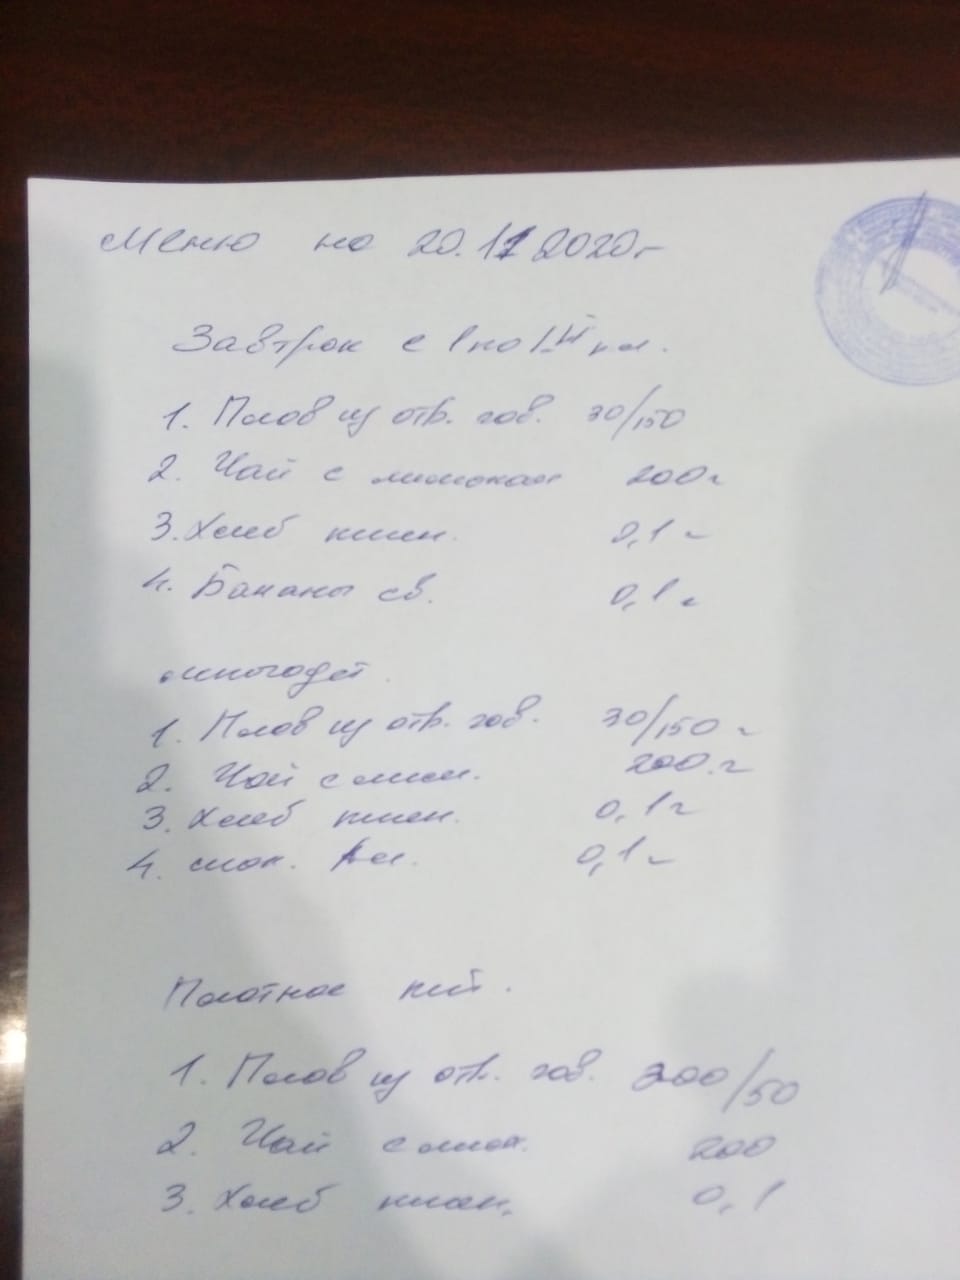 Меню на 20.11 2020г
Завтрак с 1 по кл.
1. Плов из отв. гов. 30/150
2. Чай с лимоном 200г
3. Хлеб пшен. 0,1 г
4. Бананы св. 0,1 г
многодет.
1. Плов из отв. гов. 30/150 г
2. Чай с лим. 200 г
3. Хлеб пшен. 0,1г
4. 0,1 г
Платное пит.
1. Плов из отв. гов. 200/50
2. Чай с лим. 200
3. Хлеб пшен. 0,1